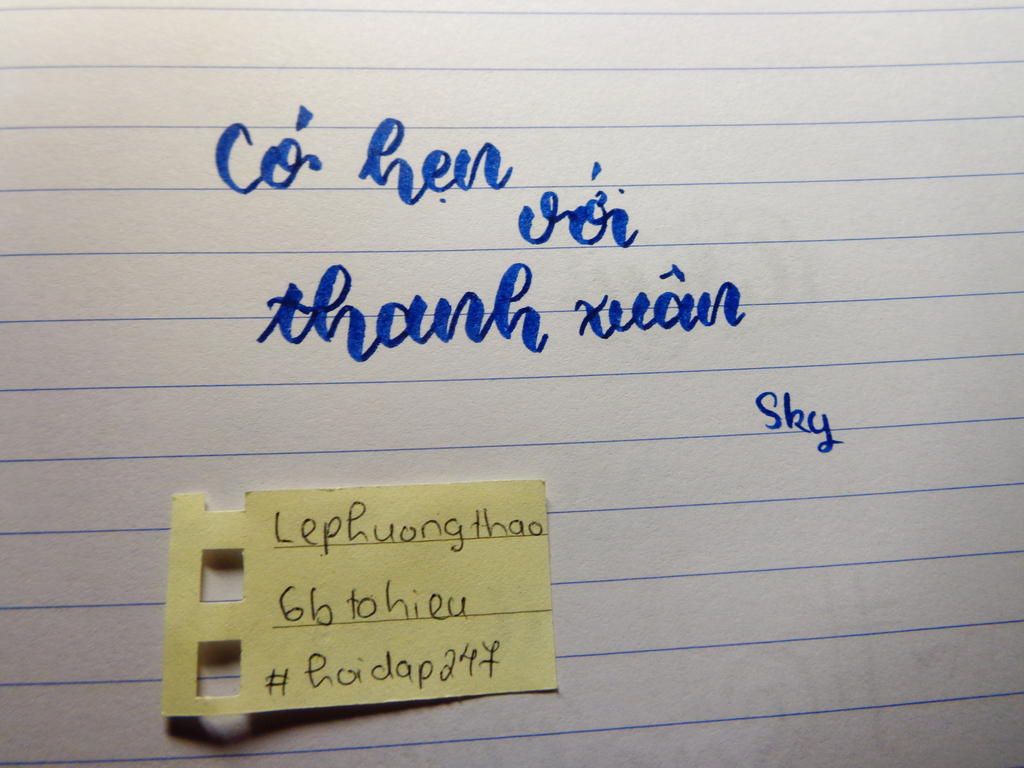 Có hẹn
với
thanh xuân
Sky
Lephuongthao
6b tohieu
#hoidap247